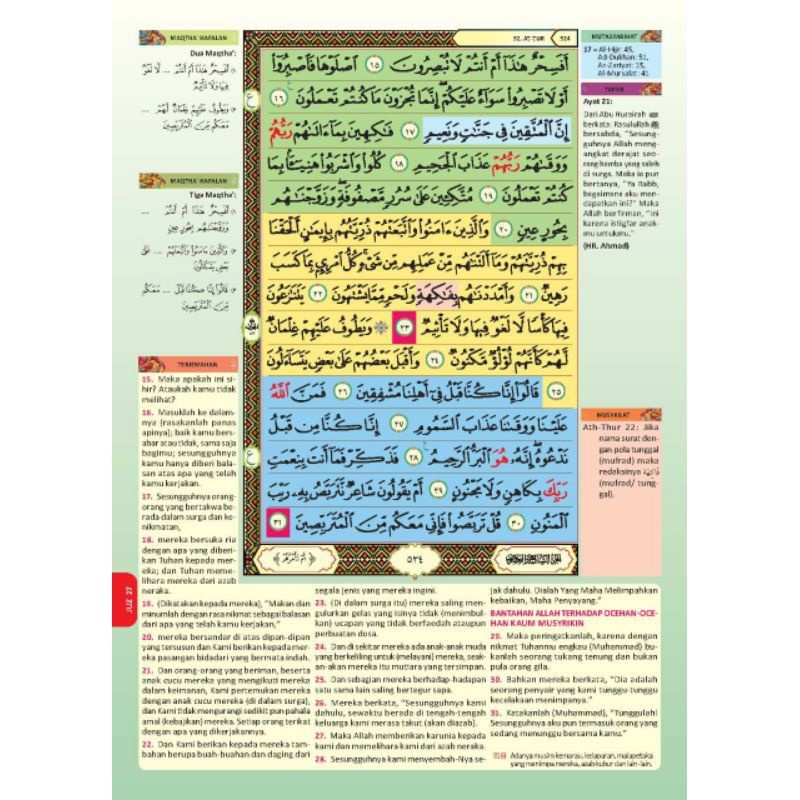 52. AT-TUR 524
MAQTHA' HAFALAN
Dua Maqtha':
أَفَسِحْرٌ هَٰذَا أَمْ أَنتُمْ ... لَّا لَغْوٌ
فِيهَا وَلَا تَأْثِيمٌ
وَيَطُوفُ عَلَيْهِمْ غِلْمَانٌ لَّهُمْ ...
مَعَكُم مِّنَ الْمُتَرَبِّصِينَ
MAQTHA' HAFALAN
Tiga Maqtha':
أَفَسِحْرٌ هَٰذَا أَمْ أَنتُمْ ...
وَزَوَّجْنَاهُم بِحُورٍ عِينٍ
وَالَّذِينَ ءَامَنُوا وَاتَّبَعَتْهُمْ ... عَلَىٰ
بَعْضٍ يَتَسَاءَلُونَ
قَالُوا إِنَّا كُنَّا قَبْلُ ... مَعَكُم
مِّنَ الْمُتَرَبِّصِينَ
أَفَسِحْرٌ هَٰذَا أَمْ أَنتُمْ لَا تُبْصِرُونَ ١٥ اصْلَوْهَا فَاصْبِرُوا
أَوْ لَا تَصْبِرُوا سَوَاءٌ عَلَيْكُمْ إِنَّمَا تُجْزَوْنَ مَا كُنتُمْ تَعْمَلُونَ ١٦
إِنَّ الْمُتَّقِينَ فِي جَنَّاتٍ وَنَعِيمٍ ١٧ فَاكِهِينَ بِمَا ءَاتَاهُمْ رَبُّهُمْ
وَوَقَاهُمْ رَبُّهُمْ عَذَابَ الْجَحِيمِ ١٨ كُلُوا وَاشْرَبُوا هَنِيئًا بِمَا
كُنتُمْ تَعْمَلُونَ ١٩ مُتَّكِئِينَ عَلَىٰ سُرُرٍ مَّصْفُوفَةٍ وَزَوَّجْنَاهُم
بِحُورٍ عِينٍ ٢٠ وَالَّذِينَ ءَامَنُوا وَاتَّبَعَتْهُمْ ذُرِّيَّتُهُم بِإِيمَانٍ أَلْحَقْنَا
بِهِمْ ذُرِّيَّتَهُمْ وَمَا أَلَتْنَاهُم مِّنْ عَمَلِهِم مِّن شَيْءٍ كُلُّ امْرِئٍ بِمَا كَسَبَ
رَهِينٌ ٢١ وَأَمْدَدْنَاهُم بِفَاكِهَةٍ وَلَحْمٍ مِّمَّا يَشْتَهُونَ ٢٢ يَتَنَازَعُونَ
فِيهَا كَأْسًا لَّا لَغْوٌ فِيهَا وَلَا تَأْثِيمٌ ٢٣ ۞ وَيَطُوفُ عَلَيْهِمْ غِلْمَانٌ
لَّهُمْ كَأَنَّهُمْ لُؤْلُؤٌ مَّكْنُونٌ ٢٤ وَأَقْبَلَ بَعْضُهُمْ عَلَىٰ بَعْضٍ يَتَسَاءَلُونَ
٢٥ قَالُوا إِنَّا كُنَّا قَبْلُ فِي أَهْلِنَا مُشْفِقِينَ ٢٦ فَمَنَّ اللَّهُ
عَلَيْنَا وَوَقَانَا عَذَابَ السَّمُومِ ٢٧ إِنَّا كُنَّا مِن قَبْلُ
نَدْعُوهُ إِنَّهُ هُوَ الْبَرُّ الرَّحِيمُ ٢٨ فَذَكِّرْ فَمَا أَنتَ بِنِعْمَتِ
رَبِّكَ بِكَاهِنٍ وَلَا مَجْنُونٍ ٢٩ أَمْ يَقُولُونَ شَاعِرٌ نَّتَرَبَّصُ بِهِ رَيْبَ
الْمَنُونِ ٣٠ قُلْ تَرَبَّصُوا فَإِنِّي مَعَكُم مِّنَ الْمُتَرَبِّصِينَ ٣١
٥٢٤
MUTASYABIHAT
17 = Al-Hijr: 45,
Ad-Dukhan: 51,
Az-Zariyat: 15,
Al-Mursalat: 41
TAFSIR
Ayat 21:
Dari Abu Hurairah
berkata: Rasulullah ﷺ
bersabda, "Sesung-
guhnya Allah meng-
angkat derajat seo-
rang hamba yang saleh
di surga. Maka ia pun
bertanya, "Ya Rabb,
bagaimana aku men-
dapatkan ini?" Maka
Allah berfirman, "Ini
karena istigfar anak-
mu untukmu."
(HR. Ahmad)
MUSYKILAT
Ath-Thur 22: Jika
nama surat den-
gan pola tunggal
(mufrad) maka
redaksinya فَاكِهَة
(mufrad/ tung-
gal).
TERJEMAHAN
15. Maka apakah ini si-
hir? Ataukah kamu tidak
melihat?
16. Masuklah ke dalam-
nya (rasakanlah panas
apinya); baik kamu bers-
abar atau tidak, sama saja
bagimu; sesungguhnya
kamu hanya diberi balas-
an atas apa yang telah
kamu kerjakan.
17. Sesungguhnya orang-
orang yang bertakwa be-
rada dalam surga dan ke-
nikmatan,
18. mereka bersuka ria
dengan apa yang diberi-
kan Tuhan kepada mer-
eka; dan Tuhan meme-
lihara mereka dari azab
neraka.
JUZ 27
19. (Dikatakan kepada mereka), "Makan dan
minumlah dengan rasa nikmat sebagai balasan
dari apa yang telah kamu kerjakan,"
20. mereka bersandar di atas dipan-dipan
yang tersusun dan Kami berikan kepada mer-
eka pasangan bidadari yang bermata indah.
21. Dan orang-orang yang beriman, beserta
anak cucu mereka yang mengikuti mereka
dalam keimanan, Kami pertemukan mereka
dengan anak cucu mereka (di dalam surga),
dan Kami tidak mengurangi sedikit pun pahala
amal (kebajikan) mereka. Setiap orang terikat
dengan apa yang dikerjakannya.
22. Dan Kami berikan kepada mereka tam-
bahan berupa buah-buahan dan daging dari
segala jenis yang mereka ingini.
23. (Di dalam surga itu) mereka saling men-
gulurkan gelas yang isinya tidak (menimbul-
kan) ucapan yang tidak berfaedah ataupun
perbuatan dosa.
24. Dan di sekitar mereka ada anak-anak muda
yang berkeliling untuk (melayani) mereka, seak-
an-akan mereka itu mutiara yang tersimpan.
25. Dan sebagian mereka berhadap-hadapan
satu sama lain saling bertegur sapa.
26. Mereka berkata, "Sesungguhnya kami
dahulu, sewaktu berada di tengah-tengah
keluarga kami merasa takut (akan diazab).
27. Maka Allah memberikan karunia kepada
kami dan memelihara kami dari azab neraka.
28. Sesungguhnya kami menyembah-Nya se-
jak dahulu. Dialah Yang Maha Melimpahkan
kebaikan, Maha Penyayang."
BANTAHAN ALLAH TERHADAP OCEHAN-OCE-
HAN KAUM MUSYRIKIN
29. Maka peringatkanlah, karena dengan
nikmat Tuhanmu engkau (Muhammad) bu-
kanlah seorang tukang tenung dan bukan
pula orang gila.
30. Bahkan mereka berkata, "Dia adalah
seorang penyair yang kami tunggu-tunggu
kecelakaan menimpanya."
31. Katakanlah (Muhammad), "Tunggulah!
Sesungguhnya aku pun termasuk orang yang
sedang menunggu bersama kamu."
Adanya musim kemarau, kelaparan, malapetaka
yang menimpa mereka, azab kubur dan lain-lain.